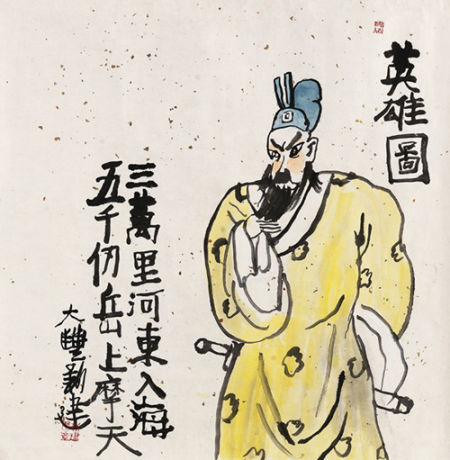 英雄圖
三萬里河東入海
五千仞岳上摩天
大豐新建